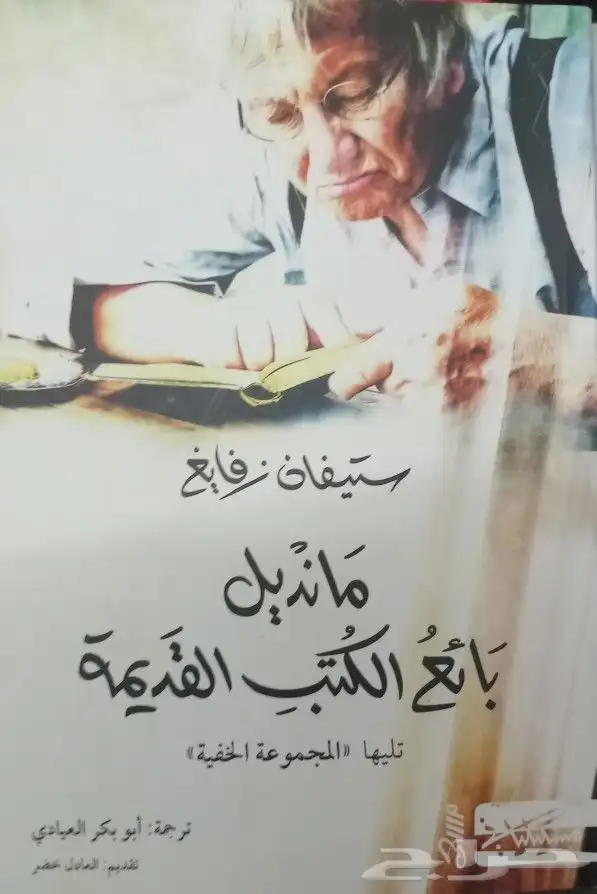 ستيفان زفايغ
مَانْدِيل
بَائعُ الكُتبِ القَديمة
تليها «المجموعة الخفية»
ترجمة: أبو بكر العيادي
تقديم: العادل خضر
مسكيلياني
حراج